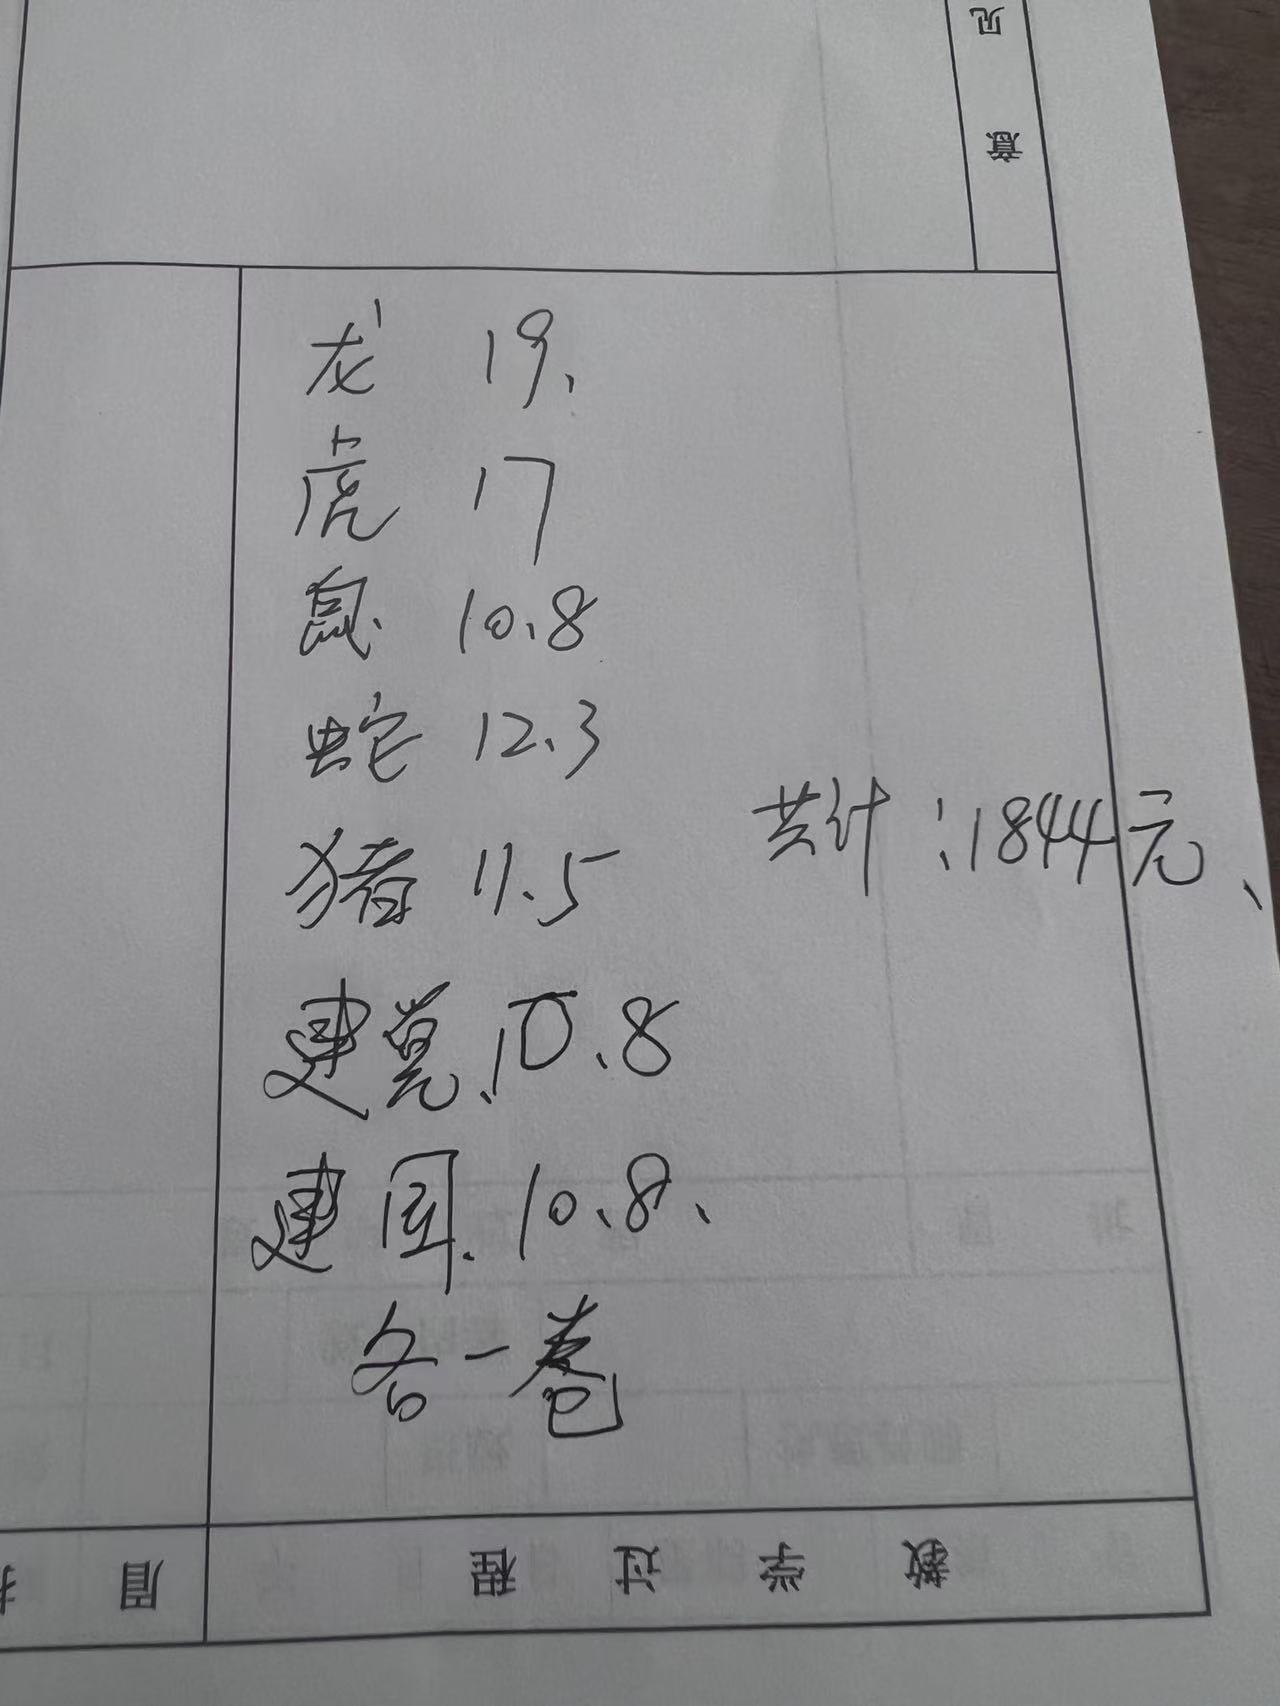 见
意
龙 19、
虎 17
鼠 10.8
蛇 12.3
猪 11.5
共计：1844元、
建党、10.8
建国. 10.8、
各一卷
教学过程
眉